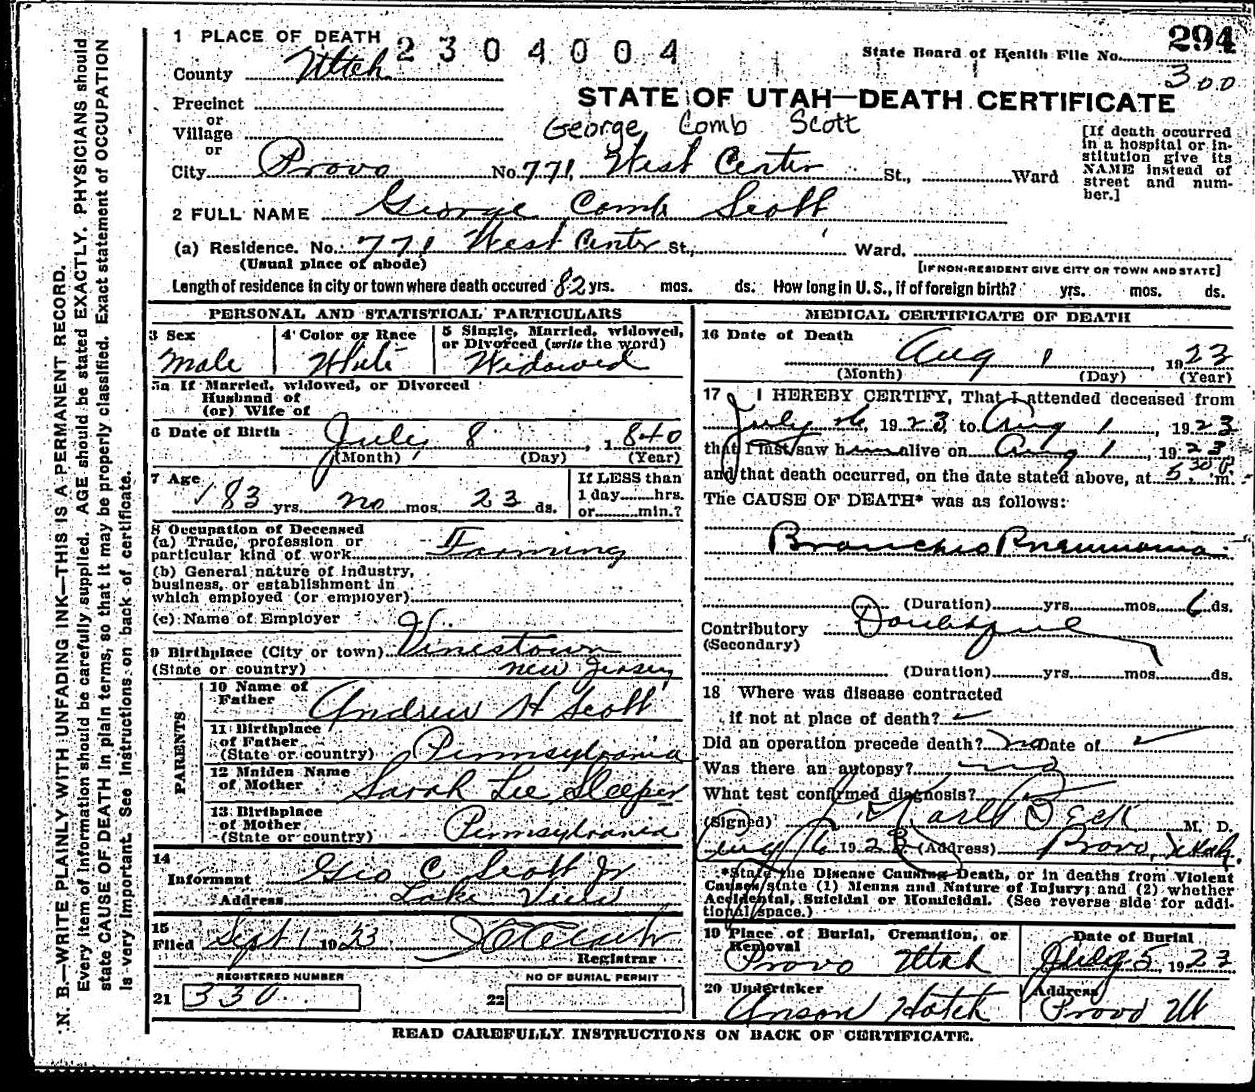 294
State Board of Health File No.
300
1 PLACE OF DEATH 2304004
County Utah
STATE OF UTAH—DEATH CERTIFICATE
Precinct
or
Village
or
George Comb Scott
City Provo No. 771 West Center St., Ward
[If death occurred in a hospital or institution give its NAME instead of street and number.]
2 FULL NAME George Comb Scott
(a) Residence. No. 771 West Center St., Ward.
(Usual place of abode) [IF NON-RESIDENT GIVE CITY OR TOWN AND STATE]
Length of residence in city or town where death occured 82 yrs. mos. ds. How long in U.S., if of foreign birth? yrs. mos. ds.
PERSONAL AND STATISTICAL PARTICULARS
3 Sex
Male
4 Color or Race
White
5 Single, Married, widowed, or Divorced (write the word)
Widowed
5a If Married, widowed, or Divorced
Husband of
(or) Wife of
6 Date of Birth July 8 1840
(Month) (Day) (Year)
7 Age
83 yrs. no mos. 23 ds.
If LESS than
1 day hrs.
or min.?
8 Occupation of Deceased
(a) Trade, profession or
particular kind of work Farming
(b) General nature of industry,
business, or establishment in
which employed (or employer)
(c) Name of Employer
9 Birthplace (City or town) Vinestown
(State or country) New Jersey
PARENTS
10 Name of Father Andrew H Scott
11 Birthplace of Father (State or country) Pennsylvania
12 Maiden Name of Mother Sarah Lee Sleeper
13 Birthplace of Mother (State or country) Pennsylvania
14
Informant Geo C Scott Jr
Address Lake View
15
Filed Sept 1 1923
Registrar
REGISTERED NUMBER
21 330
NO OF BURIAL PERMIT
22
MEDICAL CERTIFICATE OF DEATH
16 Date of Death
Aug 1, 1923
(Month) (Day) (Year)
17 I HEREBY CERTIFY, That I attended deceased from
July 26, 1923, to Aug 1, 1923
that I last saw him alive on Aug 1, 1923
and that death occurred, on the date stated above, at 5 30 P. m.
The CAUSE OF DEATH* was as follows:
Broncho Pneumonia
(Duration) yrs. mos. 6 ds.
Contributory Doubtful
(Secondary)
(Duration) yrs. mos. ds.
18 Where was disease contracted
if not at place of death?
Did an operation precede death? no Date of
Was there an autopsy? no
What test confirmed diagnosis?
(Signed) Karl Beck M. D.
1923 (Address) Provo, Utah.
*State the Disease Causing Death, or in deaths from Violent
Causes state (1) Menns and Nature of Injury; and (2) whether
Accidental, Suicidal or Homicidal. (See reverse side for addi-
tional space.)
19 Place of Burial, Cremation, or Removal
Provo Utah
Date of Burial
July 5, 1923
20 Undertaker
Anson Hatch
Address
Provo Ut
READ CAREFULLY INSTRUCTIONS ON BACK OF CERTIFICATE.
N. B.—WRITE PLAINLY WITH UNFADING INK—THIS IS A PERMANENT RECORD.
Every item of information should be carefully supplied. AGE should be stated EXACTLY. PHYSICIANS should
state CAUSE OF DEATH in plain terms, so that it may be properly classified. Exact statement of OCCUPATION
is very important. See instructions on back of certificate.